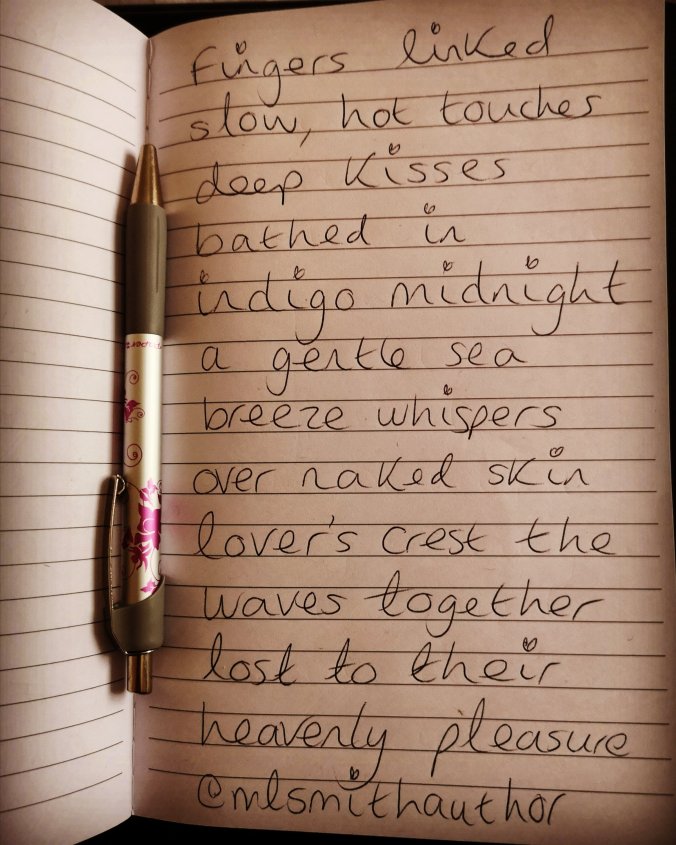 fingers linked
slow, hot touches
deep kisses
bathed in
indigo midnight
a gentle sea
breeze whispers
over naked skin
lover's crest the
waves together
lost to their
heavenly pleasure
@mlsmithauthor